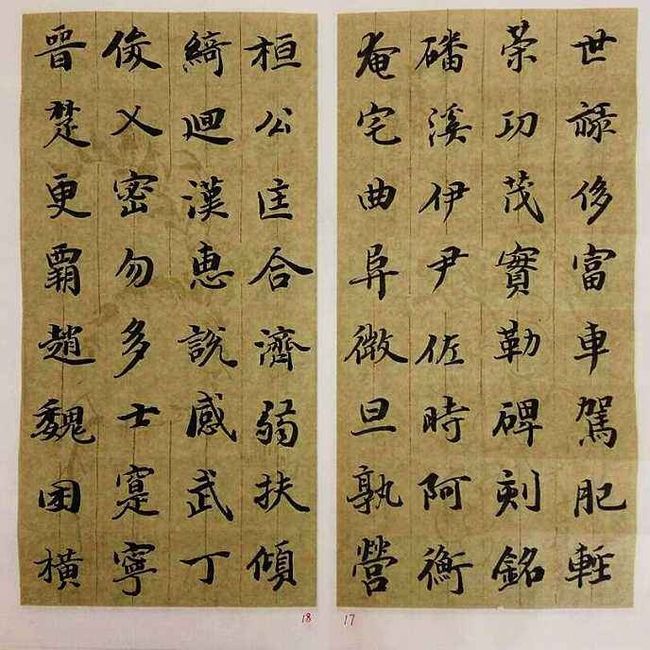 世禄侈富車駕肥輕
策功茂實勒碑刻銘
磻溪伊尹佐時阿衡
奄宅曲阜微旦孰營
桓公匡合濟弱扶傾
綺迴漢惠説感武丁
俊乂密勿多士寔寧
晉楚更霸趙魏困橫
17
18